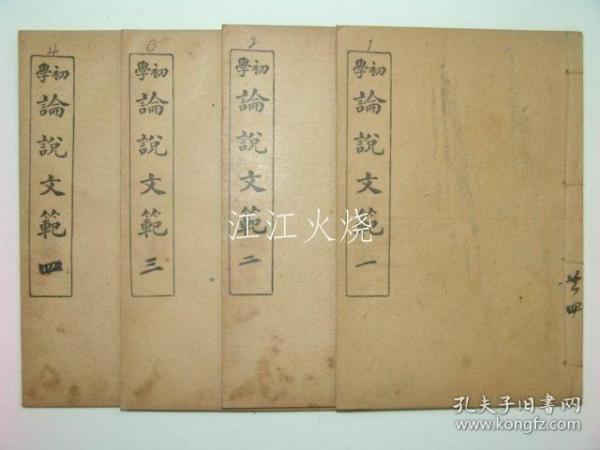 4
初學
論說文範
四
3
初學
論說文範
三
2
初學
論說文範
二
1
初學
論說文範
一
江江火烧
孔夫子旧書网
www.kongfz.com